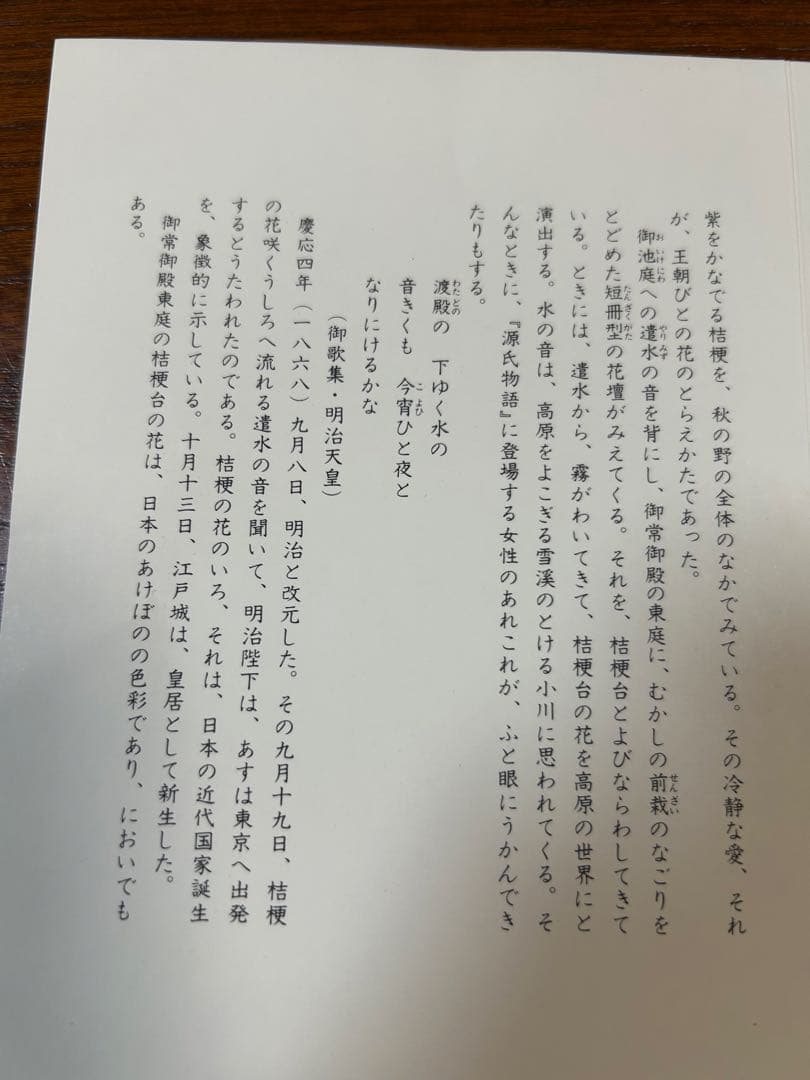 紫をかなでる桔梗を、秋の野の全体のなかでみている。その冷静な愛、それ
が、王朝びとの花のとらえかたであった。
御池庭への遣水の音を背にし、御常御殿の東庭に、むかしの前栽のなごりを
とどめた短冊型の花壇がみえてくる。それを、桔梗台とよびならわしてきて
いる。ときには、遣水から、霧がわいてきて、桔梗台の花を高原の世界にと
演出する。水の音は、高原をよこぎる雪溪のとける小川に思われてくる。そ
んなときに、『源氏物語』に登場する女性のあれこれが、ふと眼にうかんでき
たりもする。
渡殿の 下ゆく水の
音きくも 今宵ひと夜と
なりにけるかな
（御歌集・明治天皇）
慶応四年（一八六八）九月八日、明治と改元した。その九月十九日、桔梗
の花咲くうしろへ流れる遣水の音を聞いて、明治陛下は、あすは東京へ出発
するとうたわれたのである。桔梗の花のいろ、それは、日本の近代国家誕生
を、象徴的に示している。十月十三日、江戸城は、皇居として新生した。
御常御殿東庭の桔梗台の花は、日本のあけぼのの色彩であり、においでも
ある。